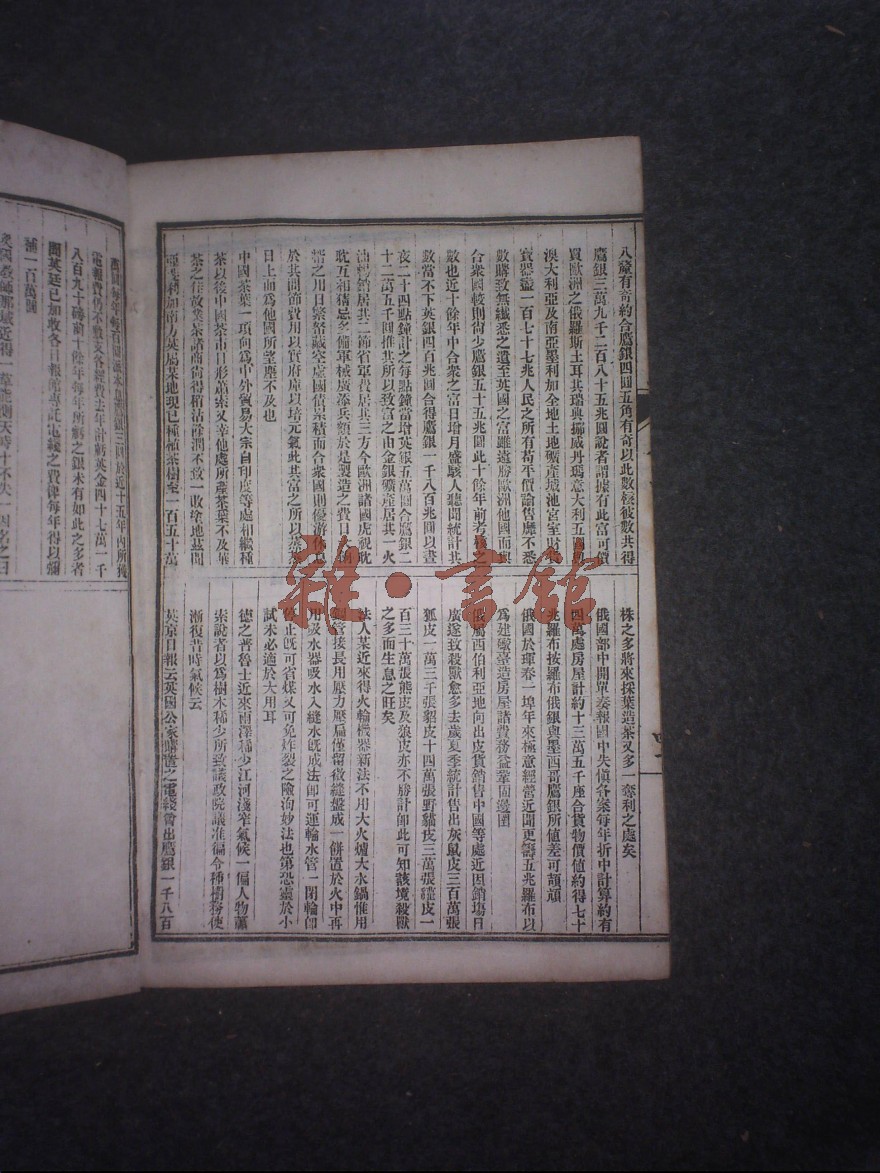 八釐有奇約合鷹銀四圓五角有奇以此數經彼數共得
鷹銀三萬九千二百八十五兆圓說者謂據有此富可價
買歐洲之俄羅斯土耳其瑞典挪威丹瑪意大利五國
澳大利亞及南亞墨利加全地土地礦產城池宮室財
寶器 一百七十七兆人民之所有苟平價論售靡不悉
數購致無纖悉之遺至英國之富雖遠勝歐洲他國而與
合衆國較則尚少鷹銀五十五兆圓此十餘年前者
數也近十餘年中合衆之富日增月盛駭人聽聞統計共
數當不下英銀四百兆圓合得鷹銀一千八百兆圓以晝
夜二十四點鐘計之每點鐘當增英銀五萬圓合鷹銀二
十二萬五千圓推其所以致富之由金銀礦產居其一火
油暢銷居其二節省軍費居其三方今歐洲諸國虎視眈
眈互相猜忌多備軍械廣添兵額於是製造之費日
糈之用日繁帑藏空虛國債累積而合衆國則優游
於其間節費用以實府庫以培元氣此其富之所以蒸
日上而爲他國所望塵不及也
中國茶葉一項向爲中外貿易大宗自印度等處相繼種
茶以後中國茶市日形蕭索又幸他處所產茶葉不及華
茶之佳故業茶諸商尚得稍沾餘潤不致一敗塗地茲聞
亞 利加南方英屬某地現已種植茶樹至一百五十萬
株之多將來採葉造茶又多一奪利之處矣
俄國部中開單奏報國中失愼各案每年折中計算約有
四萬處房屋計約十三萬五千座合貨物價値約得七十
兆羅布按羅布俄銀與墨西哥鷹銀所値差可頡頏
俄國於琿春一埠年來極意經營近聞更籌五兆羅布以
爲建礮臺造房屋諸費務益鞏固邊圉
俄屬西伯利亞地向出皮貨銷售中國等處近因銷場日
廣遂致殺獸愈多去歲夏季統計售出灰鼠皮三百萬張
狐皮一萬三千張貂皮十四萬張野貓皮三萬張 皮一
百三十萬張熊皮及狼皮亦不勝計卽此可知該境殺獸
之多而生息之旺矣
法人某近來得火輪機器新法不用大火爐大水鍋惟用
鋼管接長用壓力壓扁僅留微縫盤成一餅置於火中再
用吸水器吸水入縫水旣成法卽可運輪水管一閉輪卽
停止旣可省煤又可免炸裂之險洵妙法也第恐靈於小
試未必適於大用耳
德之普魯士近來雨澤稀少江河淺窄氣候一偏人物蕭
索說者以爲樹木稀少所致議政院議准徧令種樹務使
漸復昔時氣候云
英京日報云英國公家購置之電綫曾出鷹銀一千八百
電報費仍不敷支各經費去年計虧英金四十七萬一千
八百九十磅前十餘年每年所虧之銀未有如此之多者
聞英廷已加收各日報館專託電綫之費律每年得以彌
補一百萬圓
雜·書館